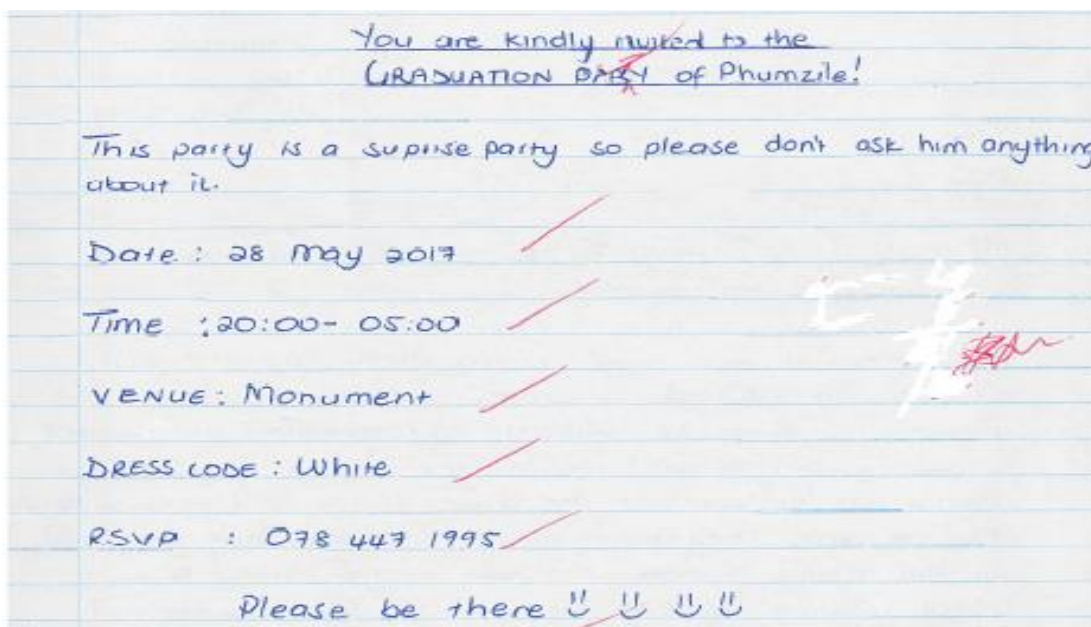 You are kindly invited to the
GRADUATION PARY of Phumzile!
This party is a suprise party so please don't ask him anything
about it.
Date : 28 May 2017
Time : 20:00- 05:00
VENUE : Monument
DRESS CODE : White
RSVP : 078 447 1995
Please be there